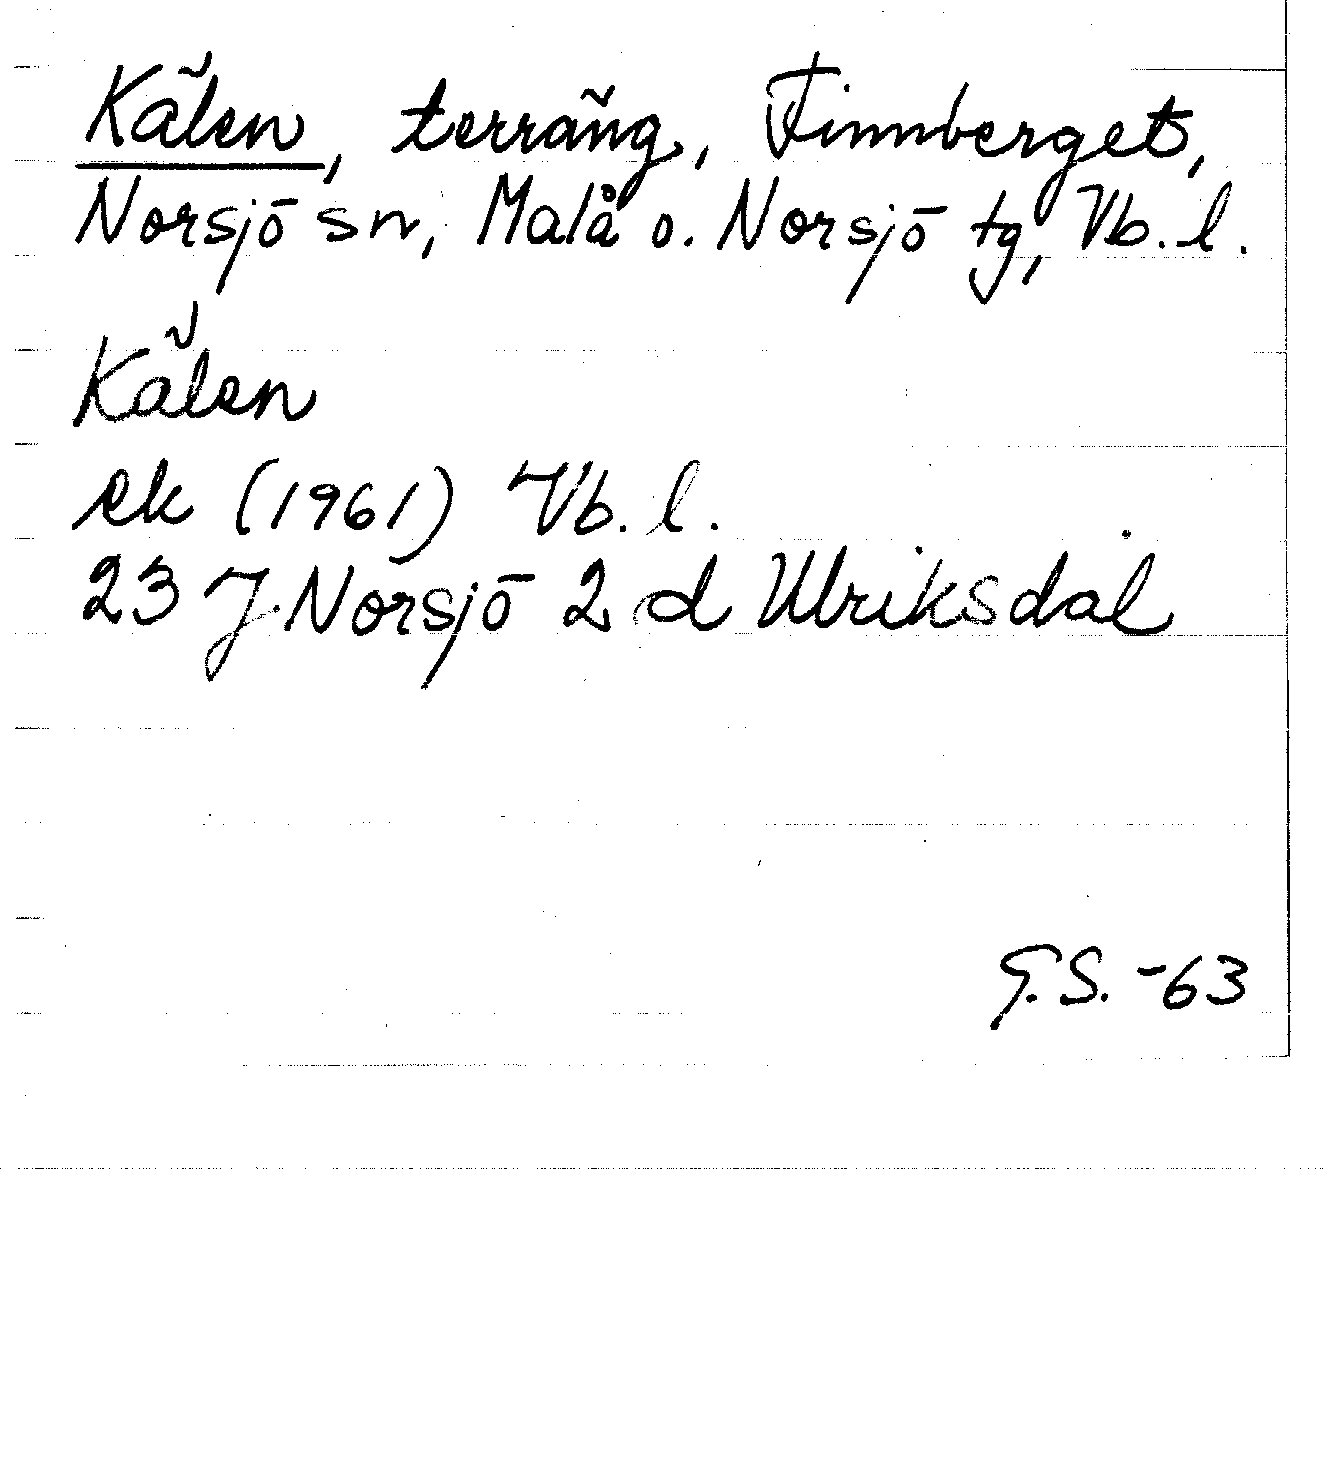 Kälen, terräng, Finnberget,
Norsjö sn, Malå o. Norsjö tg, Vb. l.
Kälen
ek (1961) Vb. l.
23 J Norsjö 2 d Ulriksdal
G.S. -63